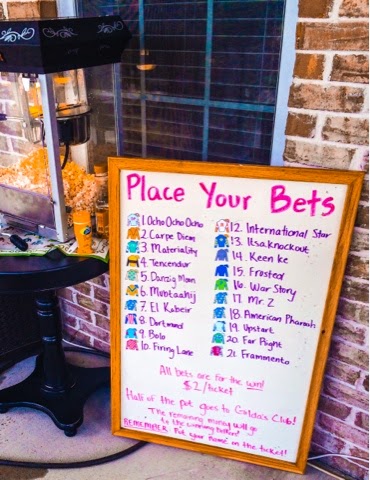 Place Your Bets
1. Ocho Ocho Ocho
2. Carpe Diem
3. Materiality
4. Tencendur
5. Danzig Moon
6. Mubtaahij
7. El Kabeir
8. Dortmund
9. Bolo
10. Firing Lane
12. International Star
13. Itsaknockout
14. Keen Ice
15. Frosted
16. War Story
17. Mr. Z
18. American Pharoah
19. Upstart
20. Far Right
21. Frammento
All bets are for the win!
$2/ticket
Half of the pot goes to Gilda's Club!
The remaining money will go
to the winning ticket!
REMEMBER Put your name on the ticket!